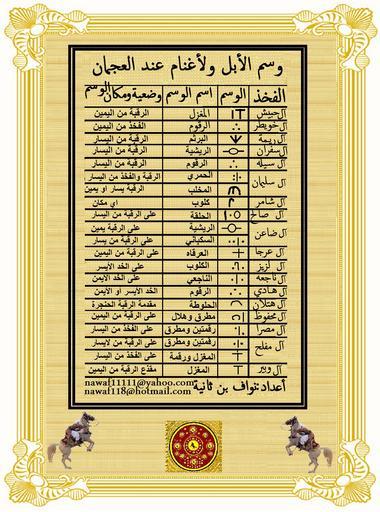 وسم الأبل ولأغنام عند العجمان
الفخذ الوسم اسم الوسم وضعية ومكان الوسم
آل حبيش المغزل الرقبة من اليمين
آل خويطر الرقوم الفخذ من اليمين
آل ريمة البرثم الرقبة من اليسار
آل سفران الريشية الرقبة من اليسار
آل سيله الرقوم الرقبة من اليسار
آل سليمان الحمري الرقبة والفخذ من اليسار
المخلب الرقبة يسار او يمين
آل شامر كلوب اي مكان
آل صالح الحلقة على الرقبة من اليسار
آل ضاعن الريشية على الرقبة يمين
السكباني على الرقبة من يسار
آل عرجا العرقاه على الرقبة من اليمين
آل لزيز الكلوب على الخد الأيسر
آل ناجعه الناجعي على الخد الايمن
آل هادي الرقوم الخد الأيسر او الايمن
آل هتلان الحلوطة مقدمة الرقبة الحنجرة
آل محفوظ مطرق وهلال على الرقبة من اليمين
آل مصرا رقمتين ومطرق على الفخذ من اليسار
آل مفلح رقمتين ومطرق على الرقبة من لايسار
المغزل ورقمة على الفخذ من لايسار
آل وبير المغزل مقدع الرقبة من اليمين
أعداد:نواف بن ثانية nawaf11111@yahoo.com
nawaf118@hotmail.com